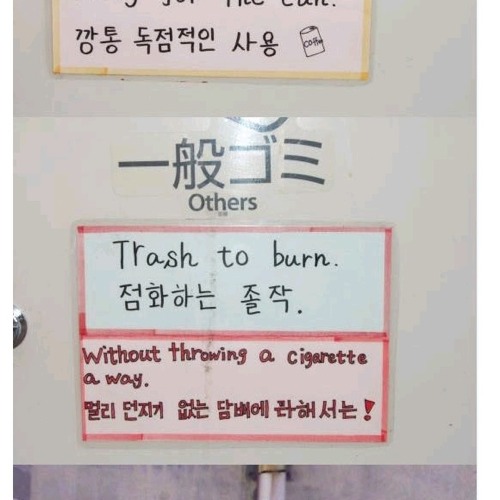 for the can.
깡통 독점적인 사용
coffee
一般ゴミ
Others
Trash to burn.
점화하는 졸작.
Without throwing a cigarette
a way.
멀리 던지기 없는 담뼈에 관해서는!